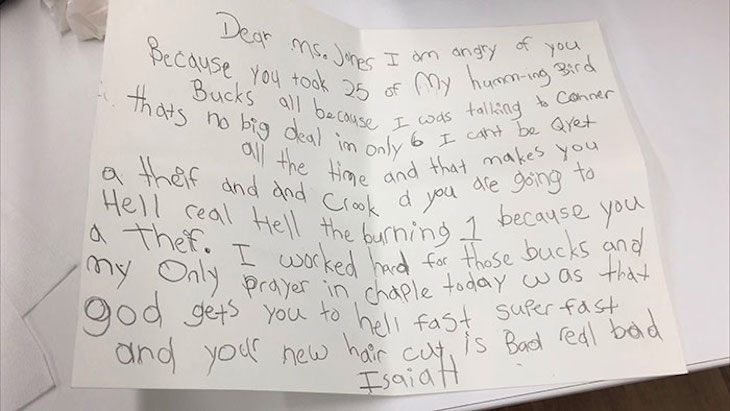 Dear Ms. Jones I am angry of you
Because you took 25 of My humm-ing Bird
Bucks all because I was talking to Conner
thats no big deal im only 6 I cant be Qyet
all the time and that makes you
a theif and and Crook d you are going to
Hell real Hell the burning 1 because you
a Thef. I worked hard for those bucks and
my Only prayer in chaple today was that
god gets you to hell fast super fast
and your new hair cut is Bad real bad
IsaiaH